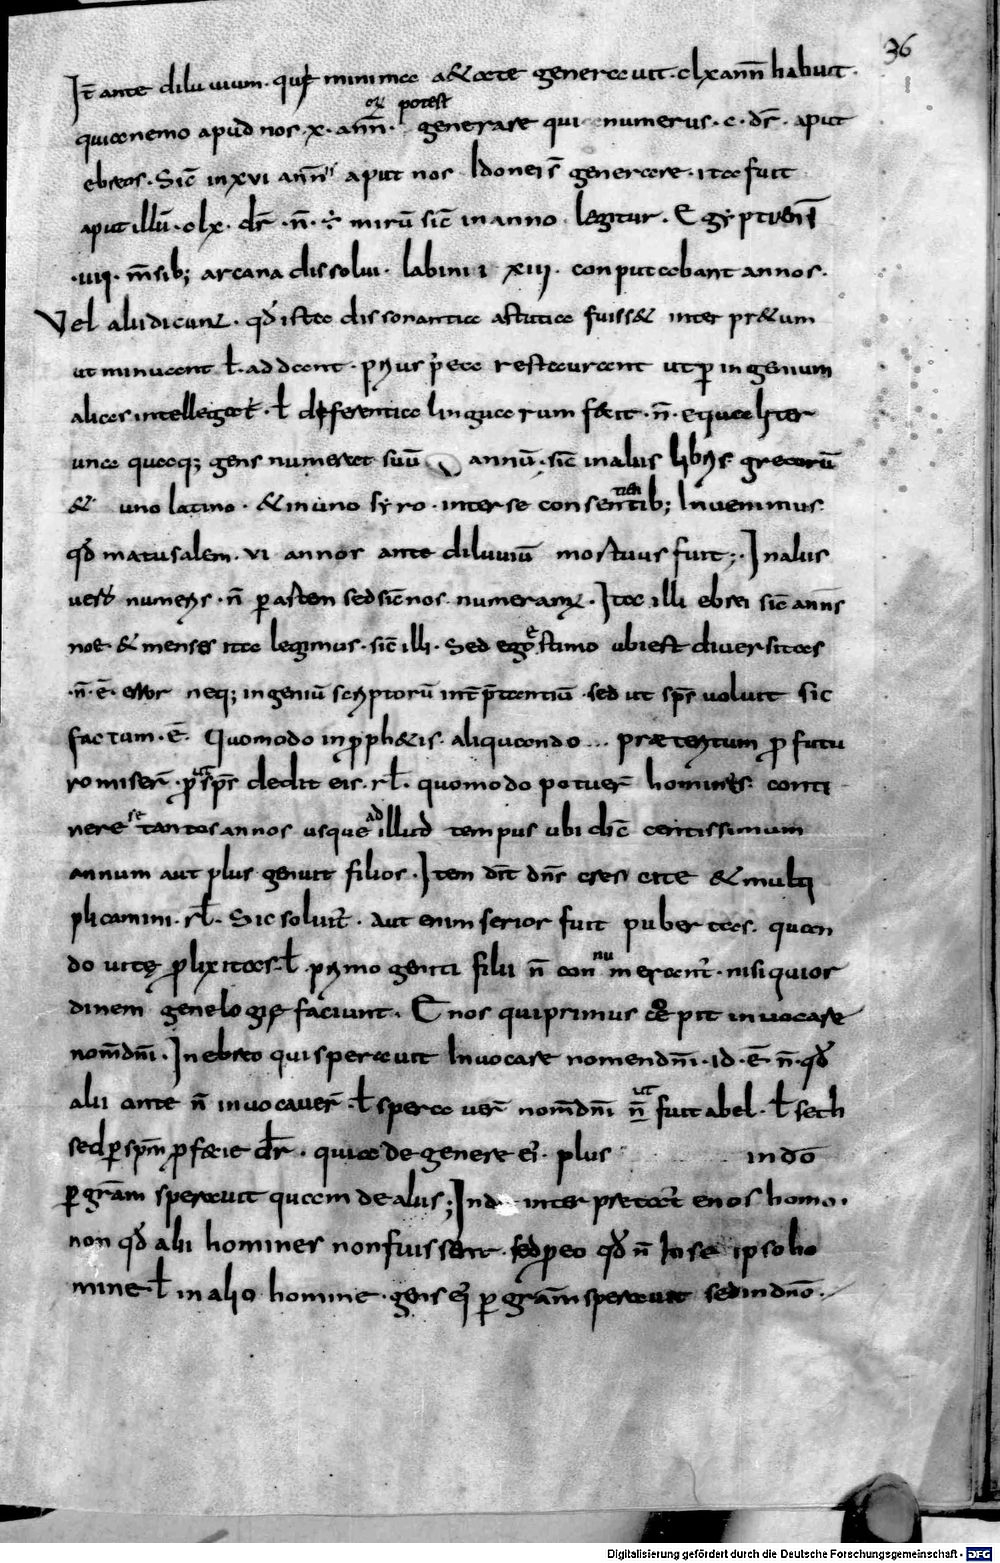 36
It̄ ante diluuium · qui minima aetate generauit · clx ann̄ habuit ·
quia nemo apud nos · x · ann̄ · orum potest generare qui numerus · c · dr̄ · aput
ebreos · Sic̄ in xvi ann̄ aput nos Idonei s̄ generare · ita fuit
aput illū · clx · dr̄ · n̄ · mirū sic̄ in anno legitur · Egyptii eni̅
· iiii · m̄sib; arcana dissolui · labini xiii · conputabant annos ·
Vel alii dicunt · qd̄ ista dissonantia astutia fuiss& inter pr&um
ut minuant ł · addant · prius p̄eta restaurant ut ꝑ ingenium
alicos intellegat · ł differentia linguarum facit · n̄ · equaliter
una quaeq; gens numerat suū annū · sic̄ in aliis libris grecorū
& uno latino · & in uno syro · inter se consentientib; Inuenimus
qd̄ matusalem · vi annos ante diluuiū mortuus fuit ; · Inaliis
uero numeris · n̄ ꝑ astem sed sic̄ nos numeramur · Ita illi ebrei sic̄ annis
noe & menses ita legimus · sic̄ illi · Sed ego estimo ubi est diuersitas
· n̄ · ē · error neq; ingeniū scriptorū int̄ p̄tantiū · sed ut sps̄ uoluit sic
factum · ē · Quomodo in proph&is · aliquando ... præteritum ꝓ futu
ro miser̄ · ꝓut sps̄ dedit eis · rł · quomodo potuer̄ homines · conti
nere se tantos annos usque ad illud tempus ubi dic̄ centissimum
annum aut plus genuit filios · Item dix̄ dn̄s cres cite & multi
plicamini · rł · Sic soluit̄ · aut enim serior fuit pubertas · quan
do uitę ꝓlixitas · ł · primo geniti filii n̄ connumerant̄ · nisi qui or
dinem genelogię faciunt · Enos qui primus cępit inuocare
nom̄ dn̄i · In ebreo qui sperauit Inuocare nomen dn̄i · id · ē · n̄ · qd̄
alii ante n̄ inuocauer̄ · ł sperauer̄ nom̄ dn̄i n̄ ut fuit abel · ł seth
sed ꝑ spm̄ ꝓfetie dr̄ · quia de genere ei · plus in do̅
ꝑ gram̄ sperauit quam de aliis ; Inde interpretat̄ enos homo ·
non qd̄ alii homines non fuissent · sed ꝓeo qd̄ n̄ In se ipso ho
mine ł in alio homine · gens ei ꝑ gram̄ sperauit sed in dn̄o ·
Digitalisierung gefördert durch die Deutsche Forschungsgemeinschaft - DFG